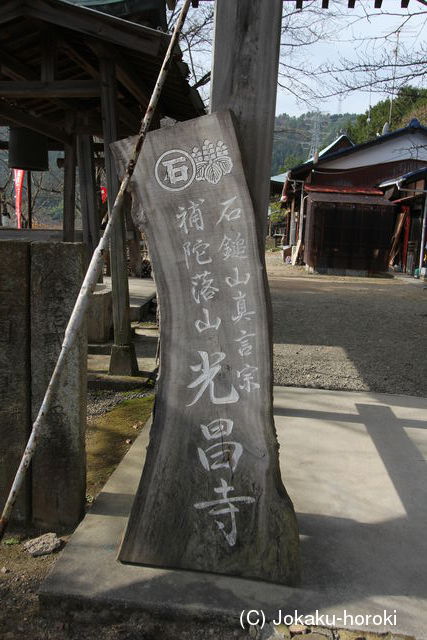 石
石鎚山真言宗
補陀落山
光昌寺
(C) Jokaku-horoki